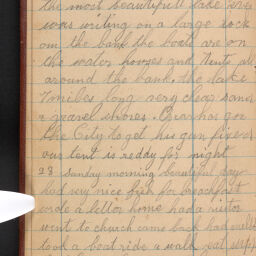 the most beautyfull lake ever
was writing on a large rock
on the bank the boats are on
the water houses and tents al
around the bank. the lake
7 miles long very clear sand
& gravel shores. Oscar has gon
the City to get his gun fixed
our tent is reddy for night
28 Sunday morning beautiful day
had very nice fish for breackfast
wrote a letter home had a visitor
went to church came back had
took a boat ride a walk eat